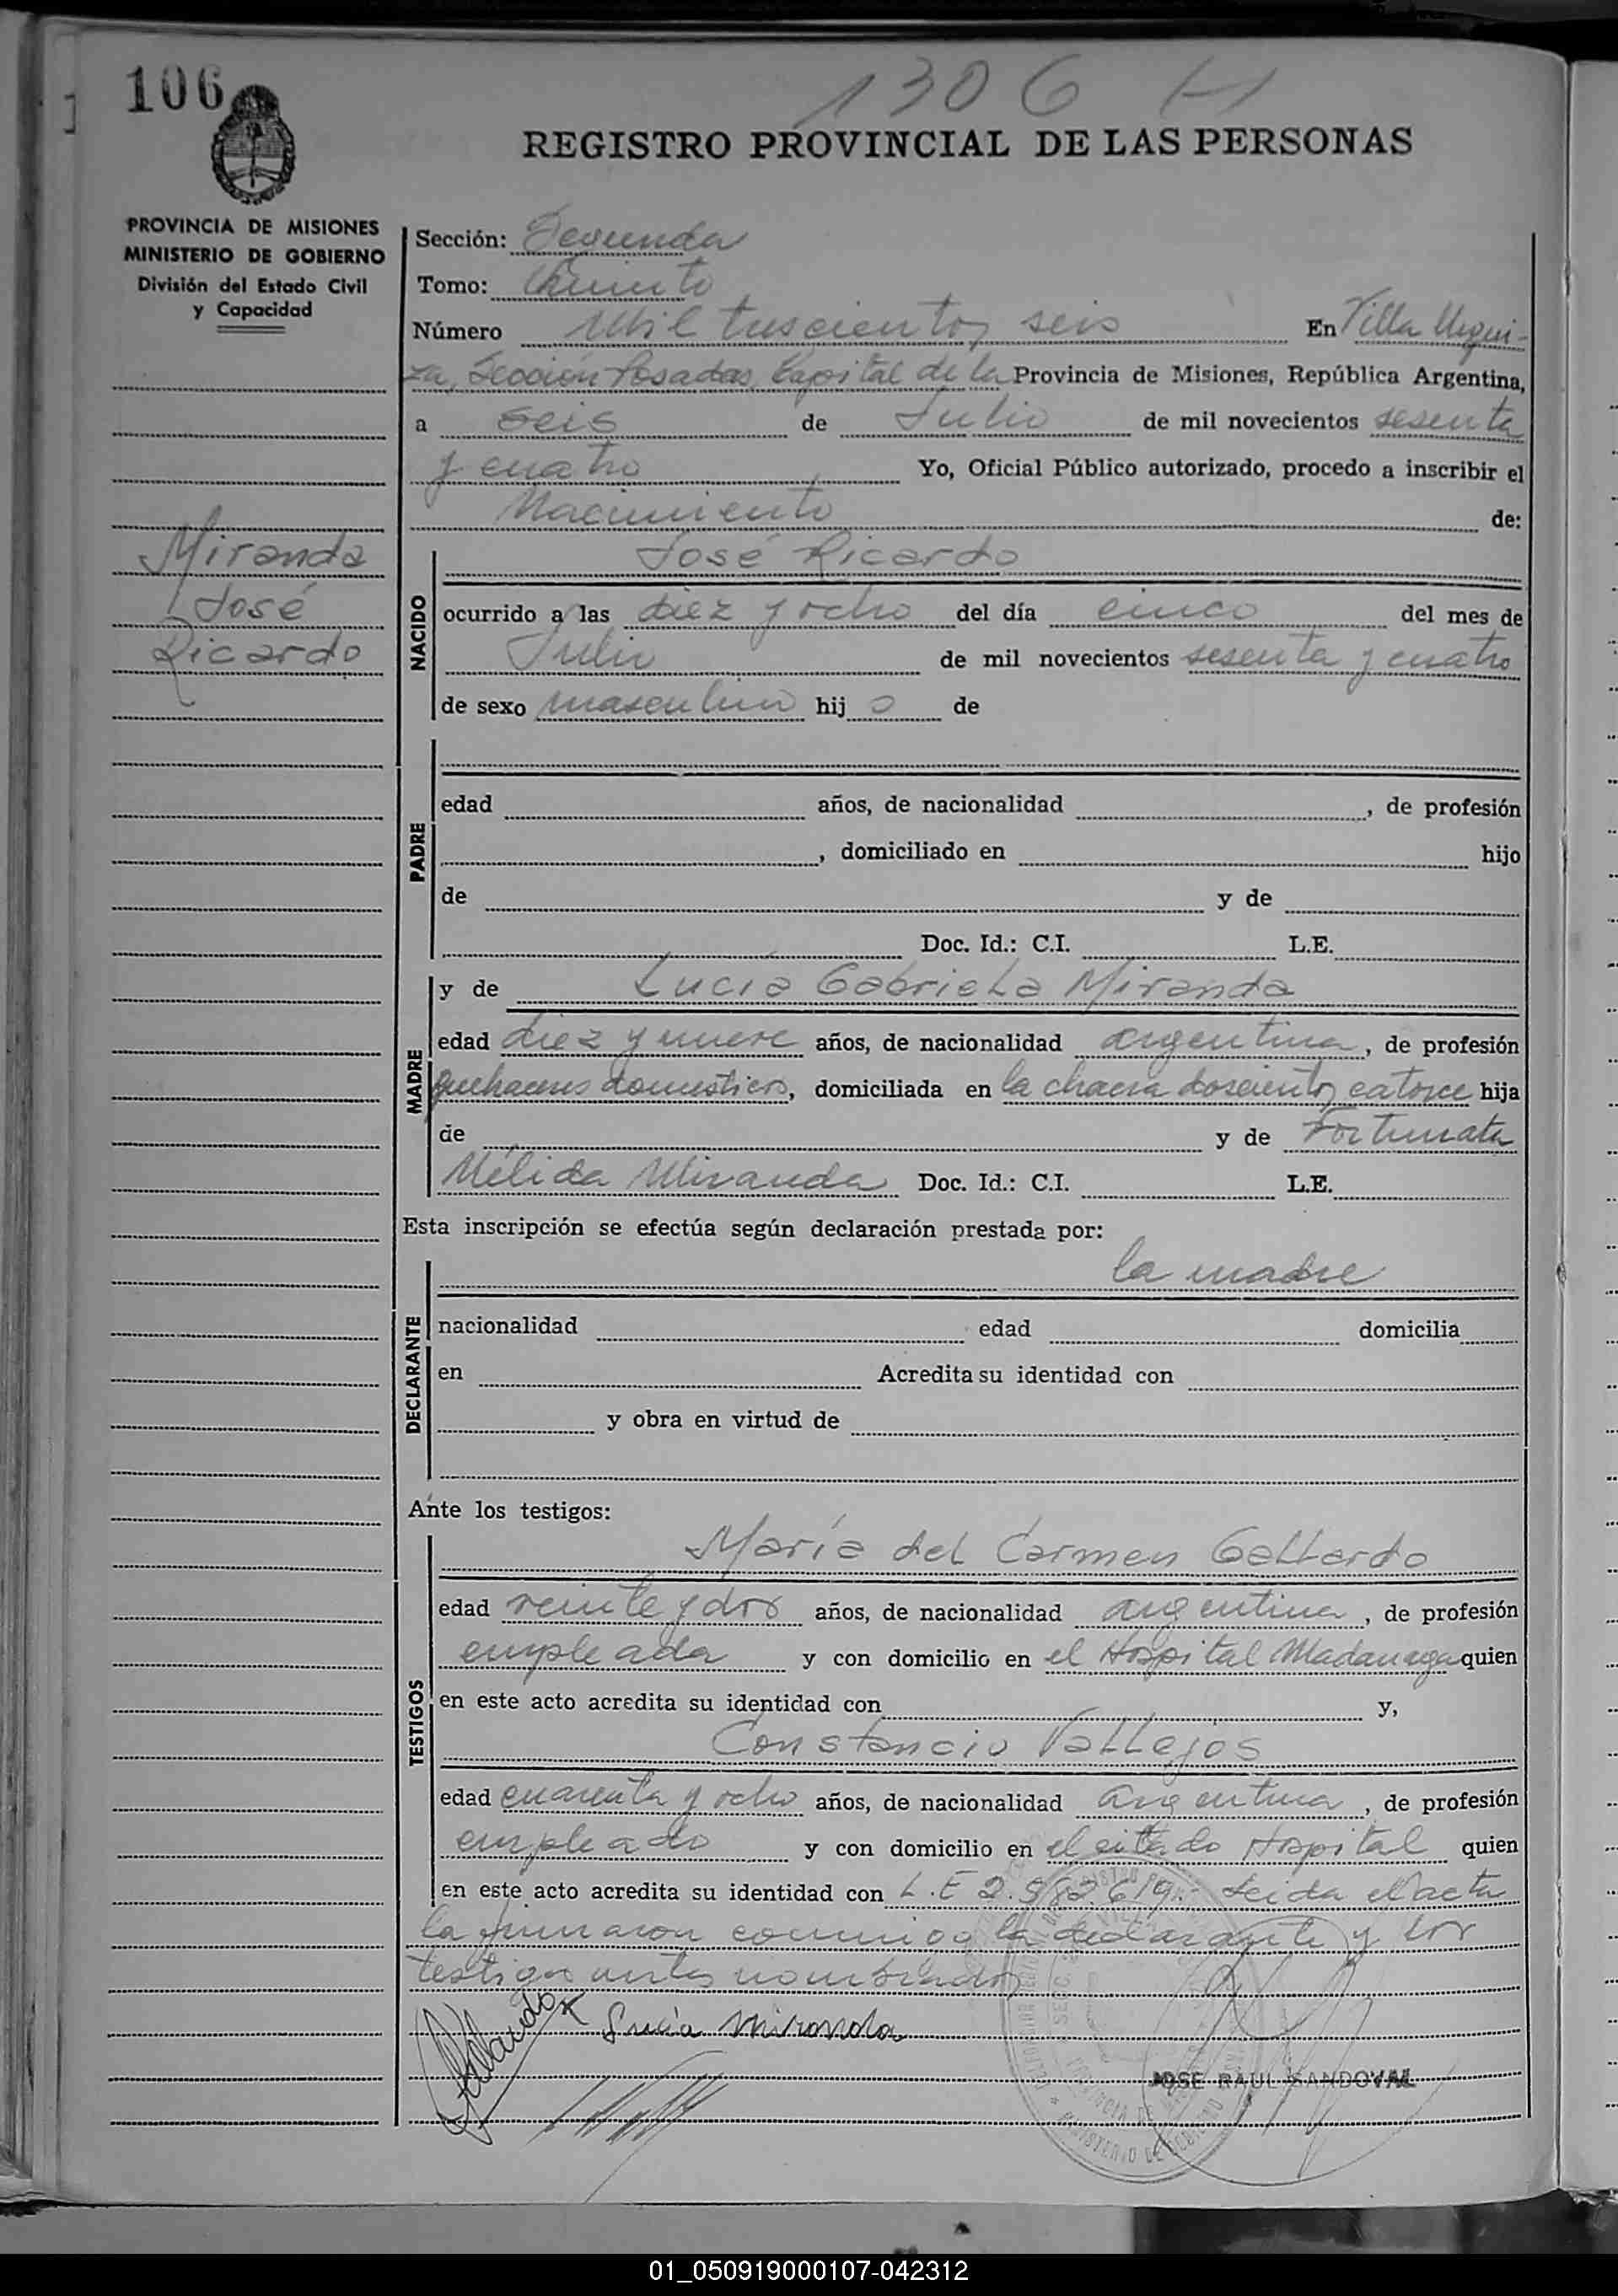 106
1306 H
REGISTRO PROVINCIAL DE LAS PERSONAS
PROVINCIA DE MISIONES
MINISTERIO DE GOBIERNO
División del Estado Civil
y Capacidad
Sección: Segunda
Tomo: Quinto
Número Mil trescientos seis En Villa Urqui-
za, Sección Posadas, Capital de la Provincia de Misiones, República Argentina,
a seis de Julio de mil novecientos sesenta
y cuatro Yo, Oficial Público autorizado, procedo a inscribir el
Nacimiento de:
Miranda
José
Ricardo
NACIDO
José Ricardo
ocurrido a las diez y ocho del día cinco del mes de
Julio de mil novecientos sesenta y cuatro
de sexo masculino hij o de
PADRE
edad años, de nacionalidad , de profesión
, domiciliado en hijo
de y de
Doc. Id.: C.I. L.E.
MADRE
y de Lucía Gabriela Miranda
edad diez y nueve años, de nacionalidad argentina, de profesión
quehaceres domesticos, domiciliada en la chacra doscientos catorce hija
de y de Fortunata
Mélida Miranda Doc. Id.: C.I. L.E.
Esta inscripción se efectúa según declaración prestada por:
DECLARANTE
la madre
nacionalidad edad domicilia
en Acredita su identidad con
y obra en virtud de
Ante los testigos:
TESTIGOS
María del Carmen Gallardo
edad veinte y dos años, de nacionalidad argentina, de profesión
empleada y con domicilio en el Hospital Madariaga quien
en este acto acredita su identidad con y,
Constancio Vallejos
edad cuarenta y ocho años, de nacionalidad argentina, de profesión
empleado y con domicilio en el citado Hospital quien
en este acto acredita su identidad con L.E 2.582.619.- Leida el acta
la firmaron conmigo la declarante y los
testigos antes nombrados
Lucía Miranda
JOSE RAUL SANDOVAL
MINISTERIO DE GOBIERNO
01_050919000107-042312